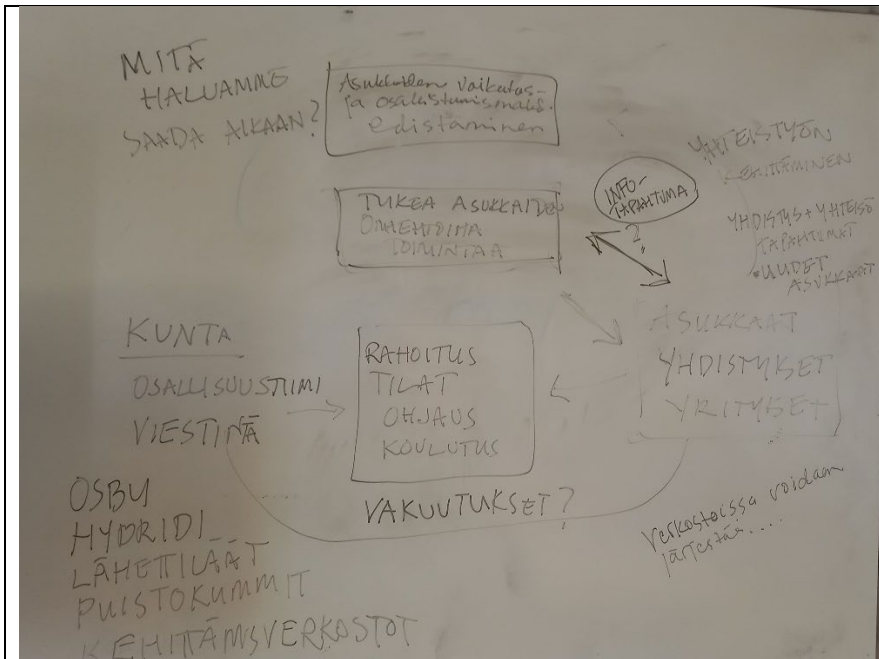 MITÄ
HALUAMME
SAADA AIKAAN?
Asukkaiden vaikutus-
ja osallistumismahd.
edistäminen
TUKEA ASUKKAIDEN
OMAEHTOISTA
TOIMINTAA
INFO-
TAPAHTUMA
?
YHTEISTYÖN
KEHITTÄMINEN
YHDISTYS+YHTEISÖ
TAPAHTUMAT
•UUDET
ASUKKAAT
KUNTA
OSALLISUUSTIIMI
VIESTINÄ
RAHOITUS
TILAT
OHJAUS
KOULUTUS
ASUKKAAT
YHDISTYKSET
YRITYKSET
VAKUUTUKSET?
Verkostoissa voidaan
järjestää....
OSBU
HYDRIDI
LÄHETTILÄÄT
PUISTOKUMMIT
KEHITTÄMSVERKOSTOT